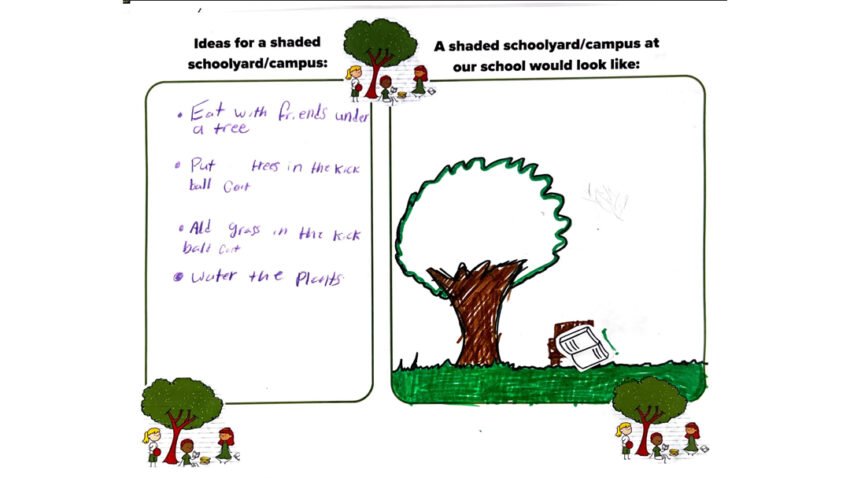 Ideas for a shaded
schoolyard/campus:
• Eat with friends under
a tree
• Put trees in the kick
ball Cort
• Add grass in the kick
ball Cort
• Water the Plants
A shaded schoolyard/campus at
our school would look like: